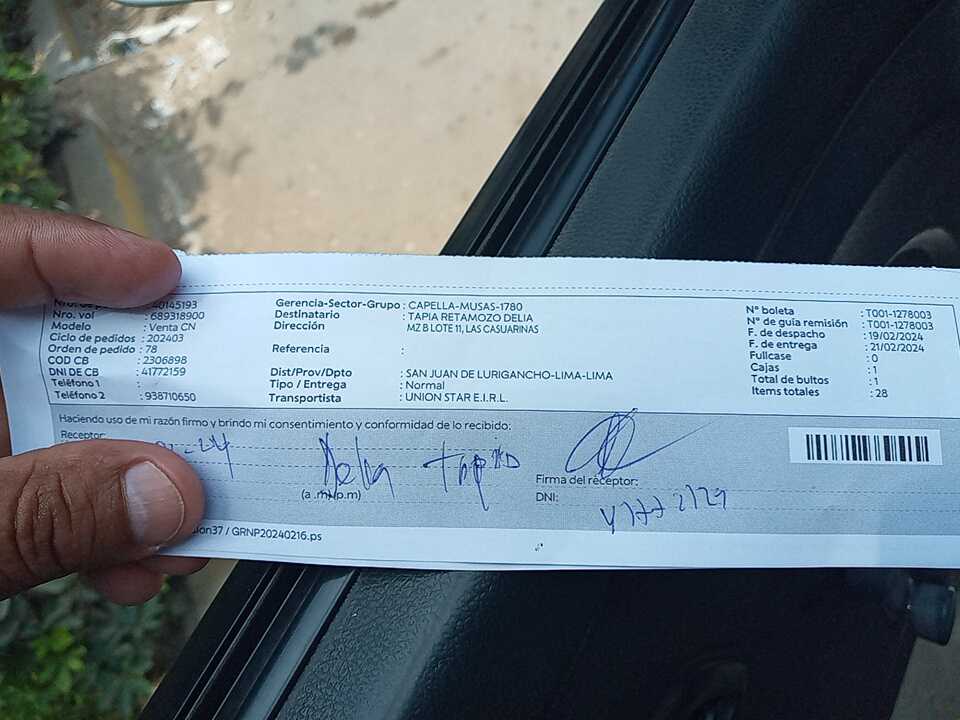 Nro. de p 40145193
Nro. vol : 689318900
Modelo : Venta CN
Ciclo de pedidos : 202403
Orden de pedido : 78
COD CB : 2306898
DNI DE CB : 41772159
Teléfono 1 :
Teléfono 2 : 938710650
Gerencia-Sector-Grupo : CAPELLA-MUSAS-1780
Destinatario : TAPIA RETAMOZO DELIA
Dirección MZ B LOTE 11, LAS CASUARINAS
Referencia :
Dist/Prov/Dpto : SAN JUAN DE LURIGANCHO-LIMA-LIMA
Tipo / Entrega : Normal
Transportista : UNION STAR E.I.R.L.
N° boleta : T001-1278003
N° de guía remisión : T001-1278003
F. de despacho : 19/02/2024
F. de entrega : 21/02/2024
Fullcase : 0
Cajas : 1
Total de bultos : 1
Items totales : 28
Haciendo uso de mi razón firmo y brindo mi consentimiento y conformidad de lo recibido:
Receptor:
Delia Tapia
(a.m./p.m)
Firma del receptor:
DNI:
ion37 / GRNP20240216.ps